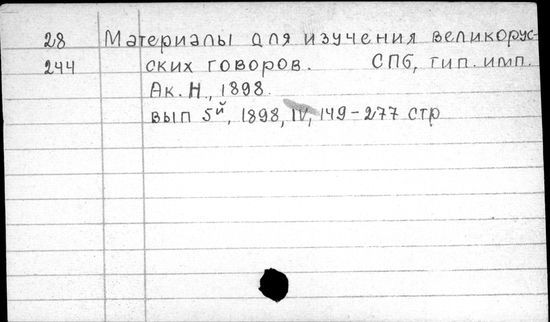 28 Материалы для изучения великорус-
244 ских говоров. СПб, тип. имп.
Ак. Н., 1898.
вып 5й, 1898, IV, 149-277 стр